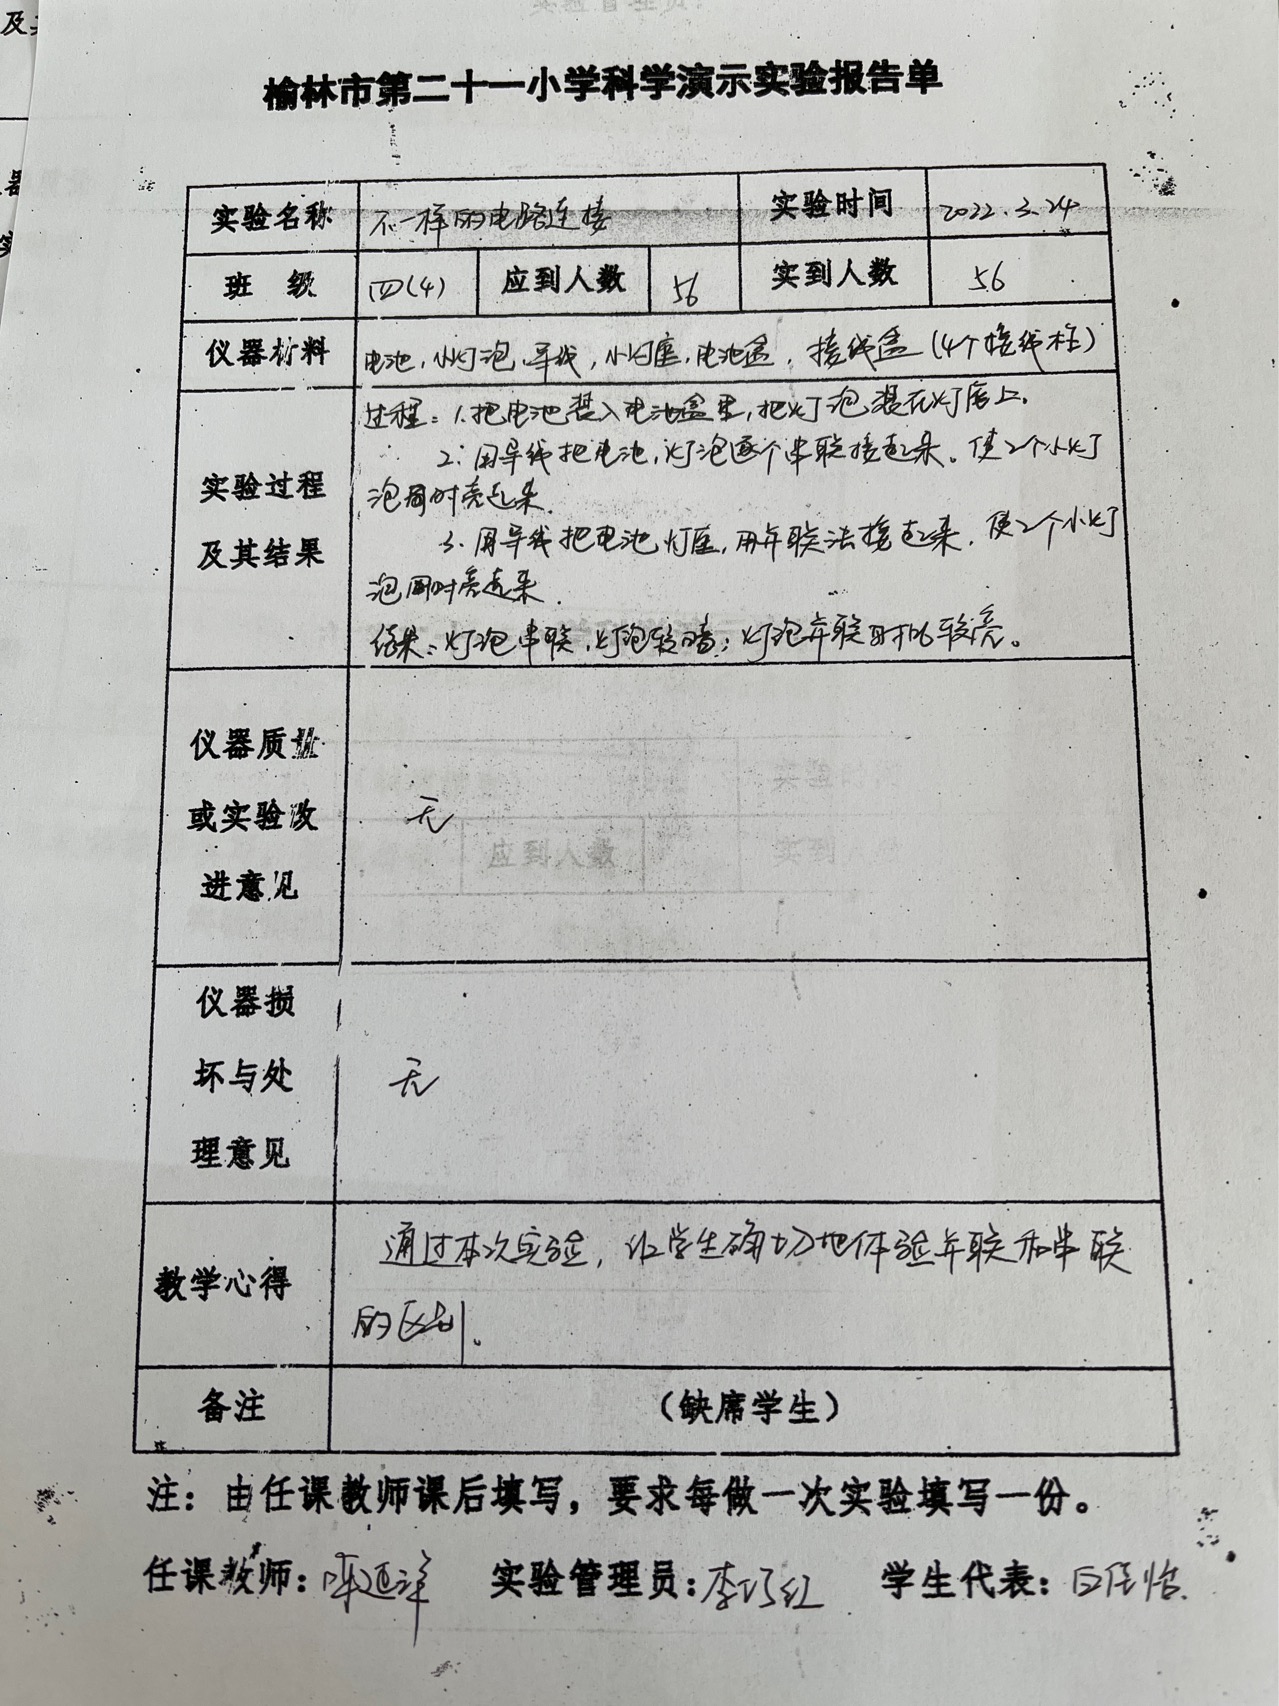 榆林市第二十一小学科学演示实验报告单
实验名称 不一样的电路连接 实验时间 2022.3.24
班 级 四(4) 应到人数 56 实到人数 56
仪器材料 电池,小灯泡,导线,小灯座,电池盒,接线盒(4个接线柱)
过程:1.把电池装入电池盒里,把灯泡装在灯座上。
2.用导线把电池,灯泡逐个串联接起来。使2个小灯
实验过程
泡同时亮起来.
3.用导线把电池,灯座,用并联法接起来,使2个小灯
及其结果
泡同时亮起来.
结果:灯泡串联,灯泡较暗;灯泡并联时较亮。
仪器质量
或实验改 无
进意见
仪器损
坏与处 无
理意见
通过本次实验,让学生确切地体验并联和串联
教学心得
的区别。
备注 (缺席学生)
注:由任课教师课后填写,要求每做一次实验填写一份。
任课教师: 实验管理员:李巧红 学生代表:白佳怡